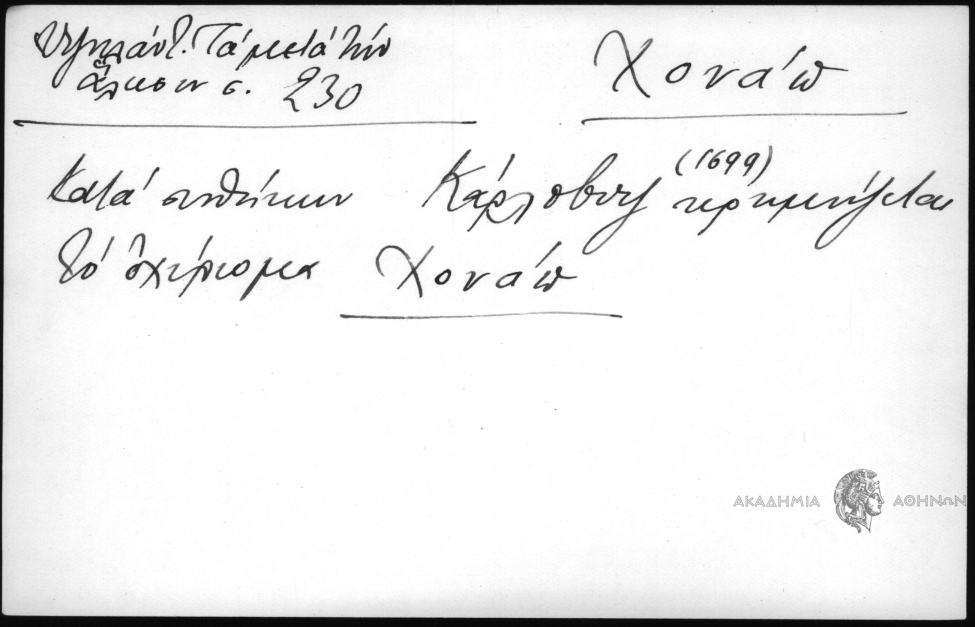 Ὑψηλάντ. Τά μετά τήν
ἅλωσιν σ. 230
Χοναίπ
Κατά συνθήκην Κάρλοβιτζ (1699) κρημνίζεται
τό ὀχύρωμα Χοναίπ
ΑΚΑΔΗΜΙΑ ΑΘΗΝΩΝ